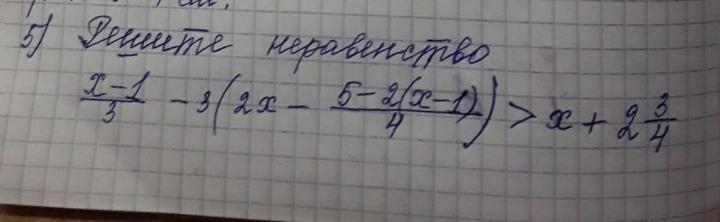 5) Решите неравенство
(x-1)/3 - 3(2x - (5-2(x-1))/4) > x + 2 3/4